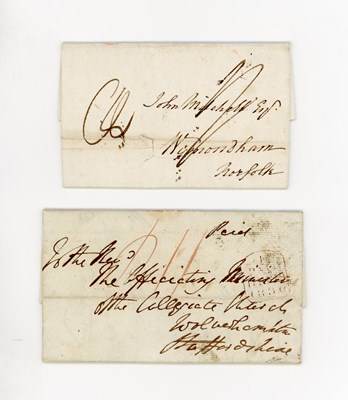 John Mitchell Esqr.
Wymondham
Norfolk
Paid
To the Revd.
The Officiating Minister
of the Collegiate Church
Wolverhampton
Staffordshire